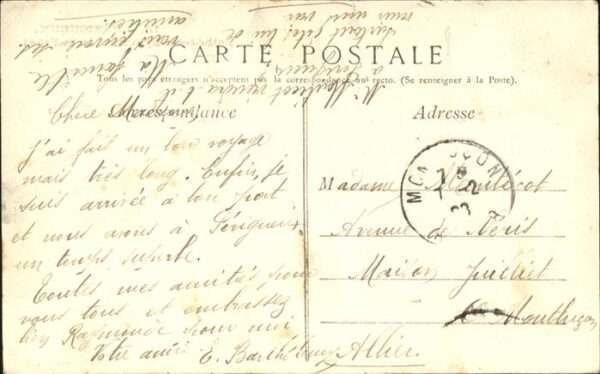 CARTE POSTALE
Tous les pays étrangers n'acceptent pas la correspondance au recto. (Se renseigner à la Poste).
Correspondance
Adresse
Chère Madame
J'ai fait un bon voyage
mais très long. Enfin, je
suis arrivée à bon port
et nous avons à Périgueux
un temps superbe.
Toutes mes amitiés pour
vous tous et embrassez
bien Raymonde pour moi.
Votre amie E.
Madame
Avenue de Néris
Maison Juilliet
Montluçon
Allier.
M.
viendra t'il
à Périgueux
La famille
surtout
vous envoie ses
amitiés.